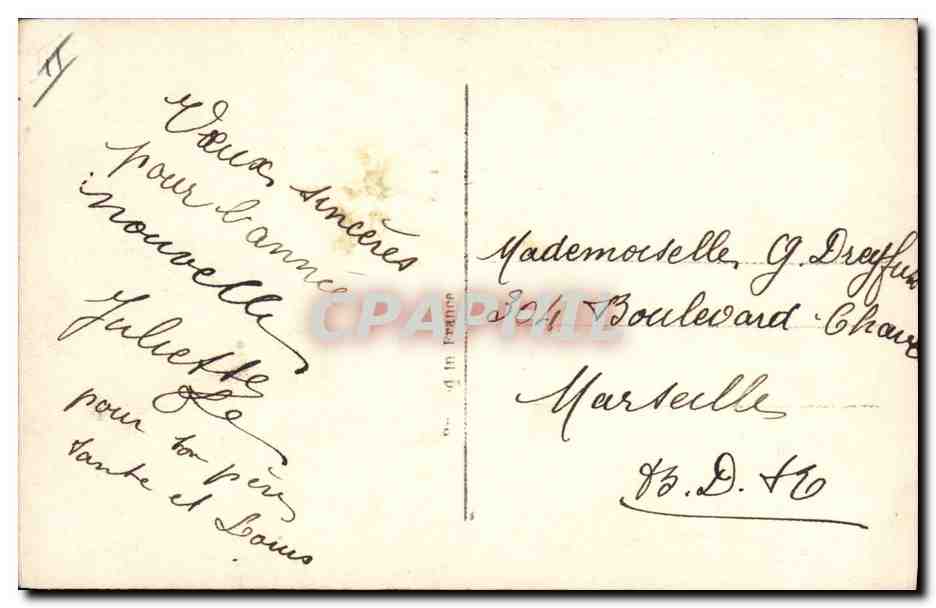 Vœux sincères
pour l'année
nouvelle
Juliette
pour ton père
tante et Louis
Mademoiselle G. Dreyfus
304 Boulevard Chave
Marseille
B. D. R
d in France
CPAPHIL